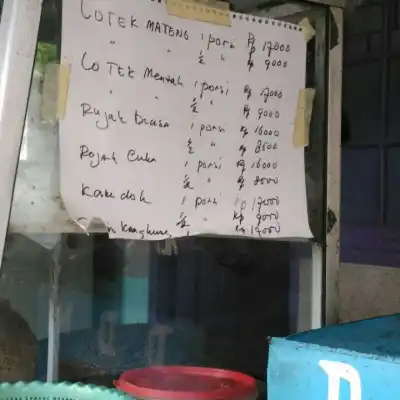 LOTEK MATENG 1 porsi Rp 17000
" " ½ " Rp 9000
LOTEK Mentah 1 porsi Rp 17000
" " ½ " Rp 9000
Rujak 1 porsi Rp 16000
½ " Rp 8500
Rojak Cuka 1 porsi Rp 16000
½ " Rp 8500
Karedok 1 porsi Rp 17000
½ " Rp 9000
Kangkung